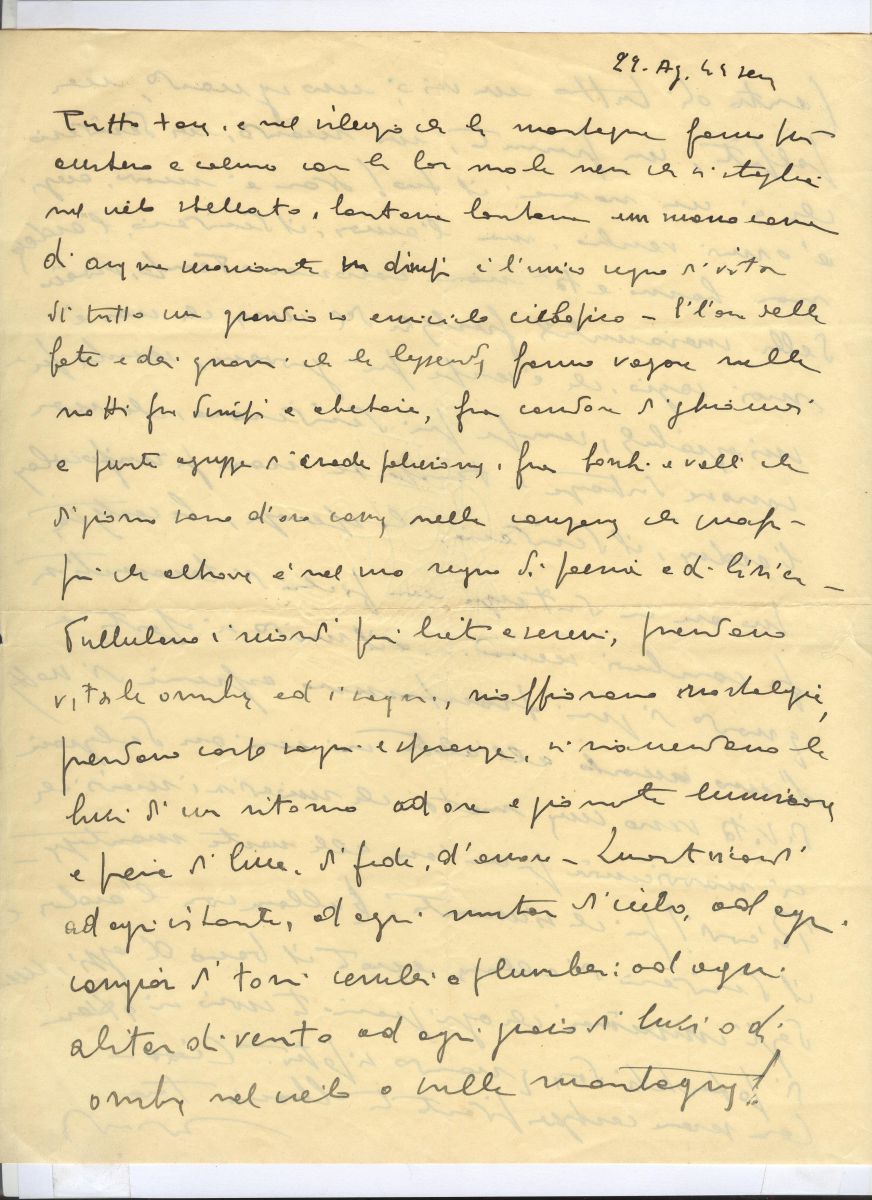 29. Ag. 45 sera
Tutto tace, e nel silenzio che le montagne fanno più
austero e calmo con la lor mole nera che si staglia
nel cielo stellato, lontana lontana un mono
di acque in dirupi è l'unico segno di vita
di tutto un grandioso emiciclo — È l'ora delle
fate e dei gnomi che le leggende fanno vagare nelle
notti fra dirupi e abetaie, fra candore di ghiacciai
e punte aguzze di, fra boschi e valli che
di giorno sono d'oro come nelle che quasi —
più che altrove è nel suo regno di poesia e di lirica —
Pullulano i ricordi più lieti e sereni, prendono
vita le ombre ed i sogni, riaffiorano nostalgie,
prendono corpo sogni e speranze, si riaccendono le
luci di un ritorno ad ore e giornate luminose
e piene di luce, di fede, d'amore — Quanti ricordi
ad ogni istante, ad ogni mutar di cielo, ad ogni
cangiar di toni cerulei o plumbei: ad ogni
alitar di vento ad ogni gioco di luci o di
ombre nel cielo o sulle montagne!!